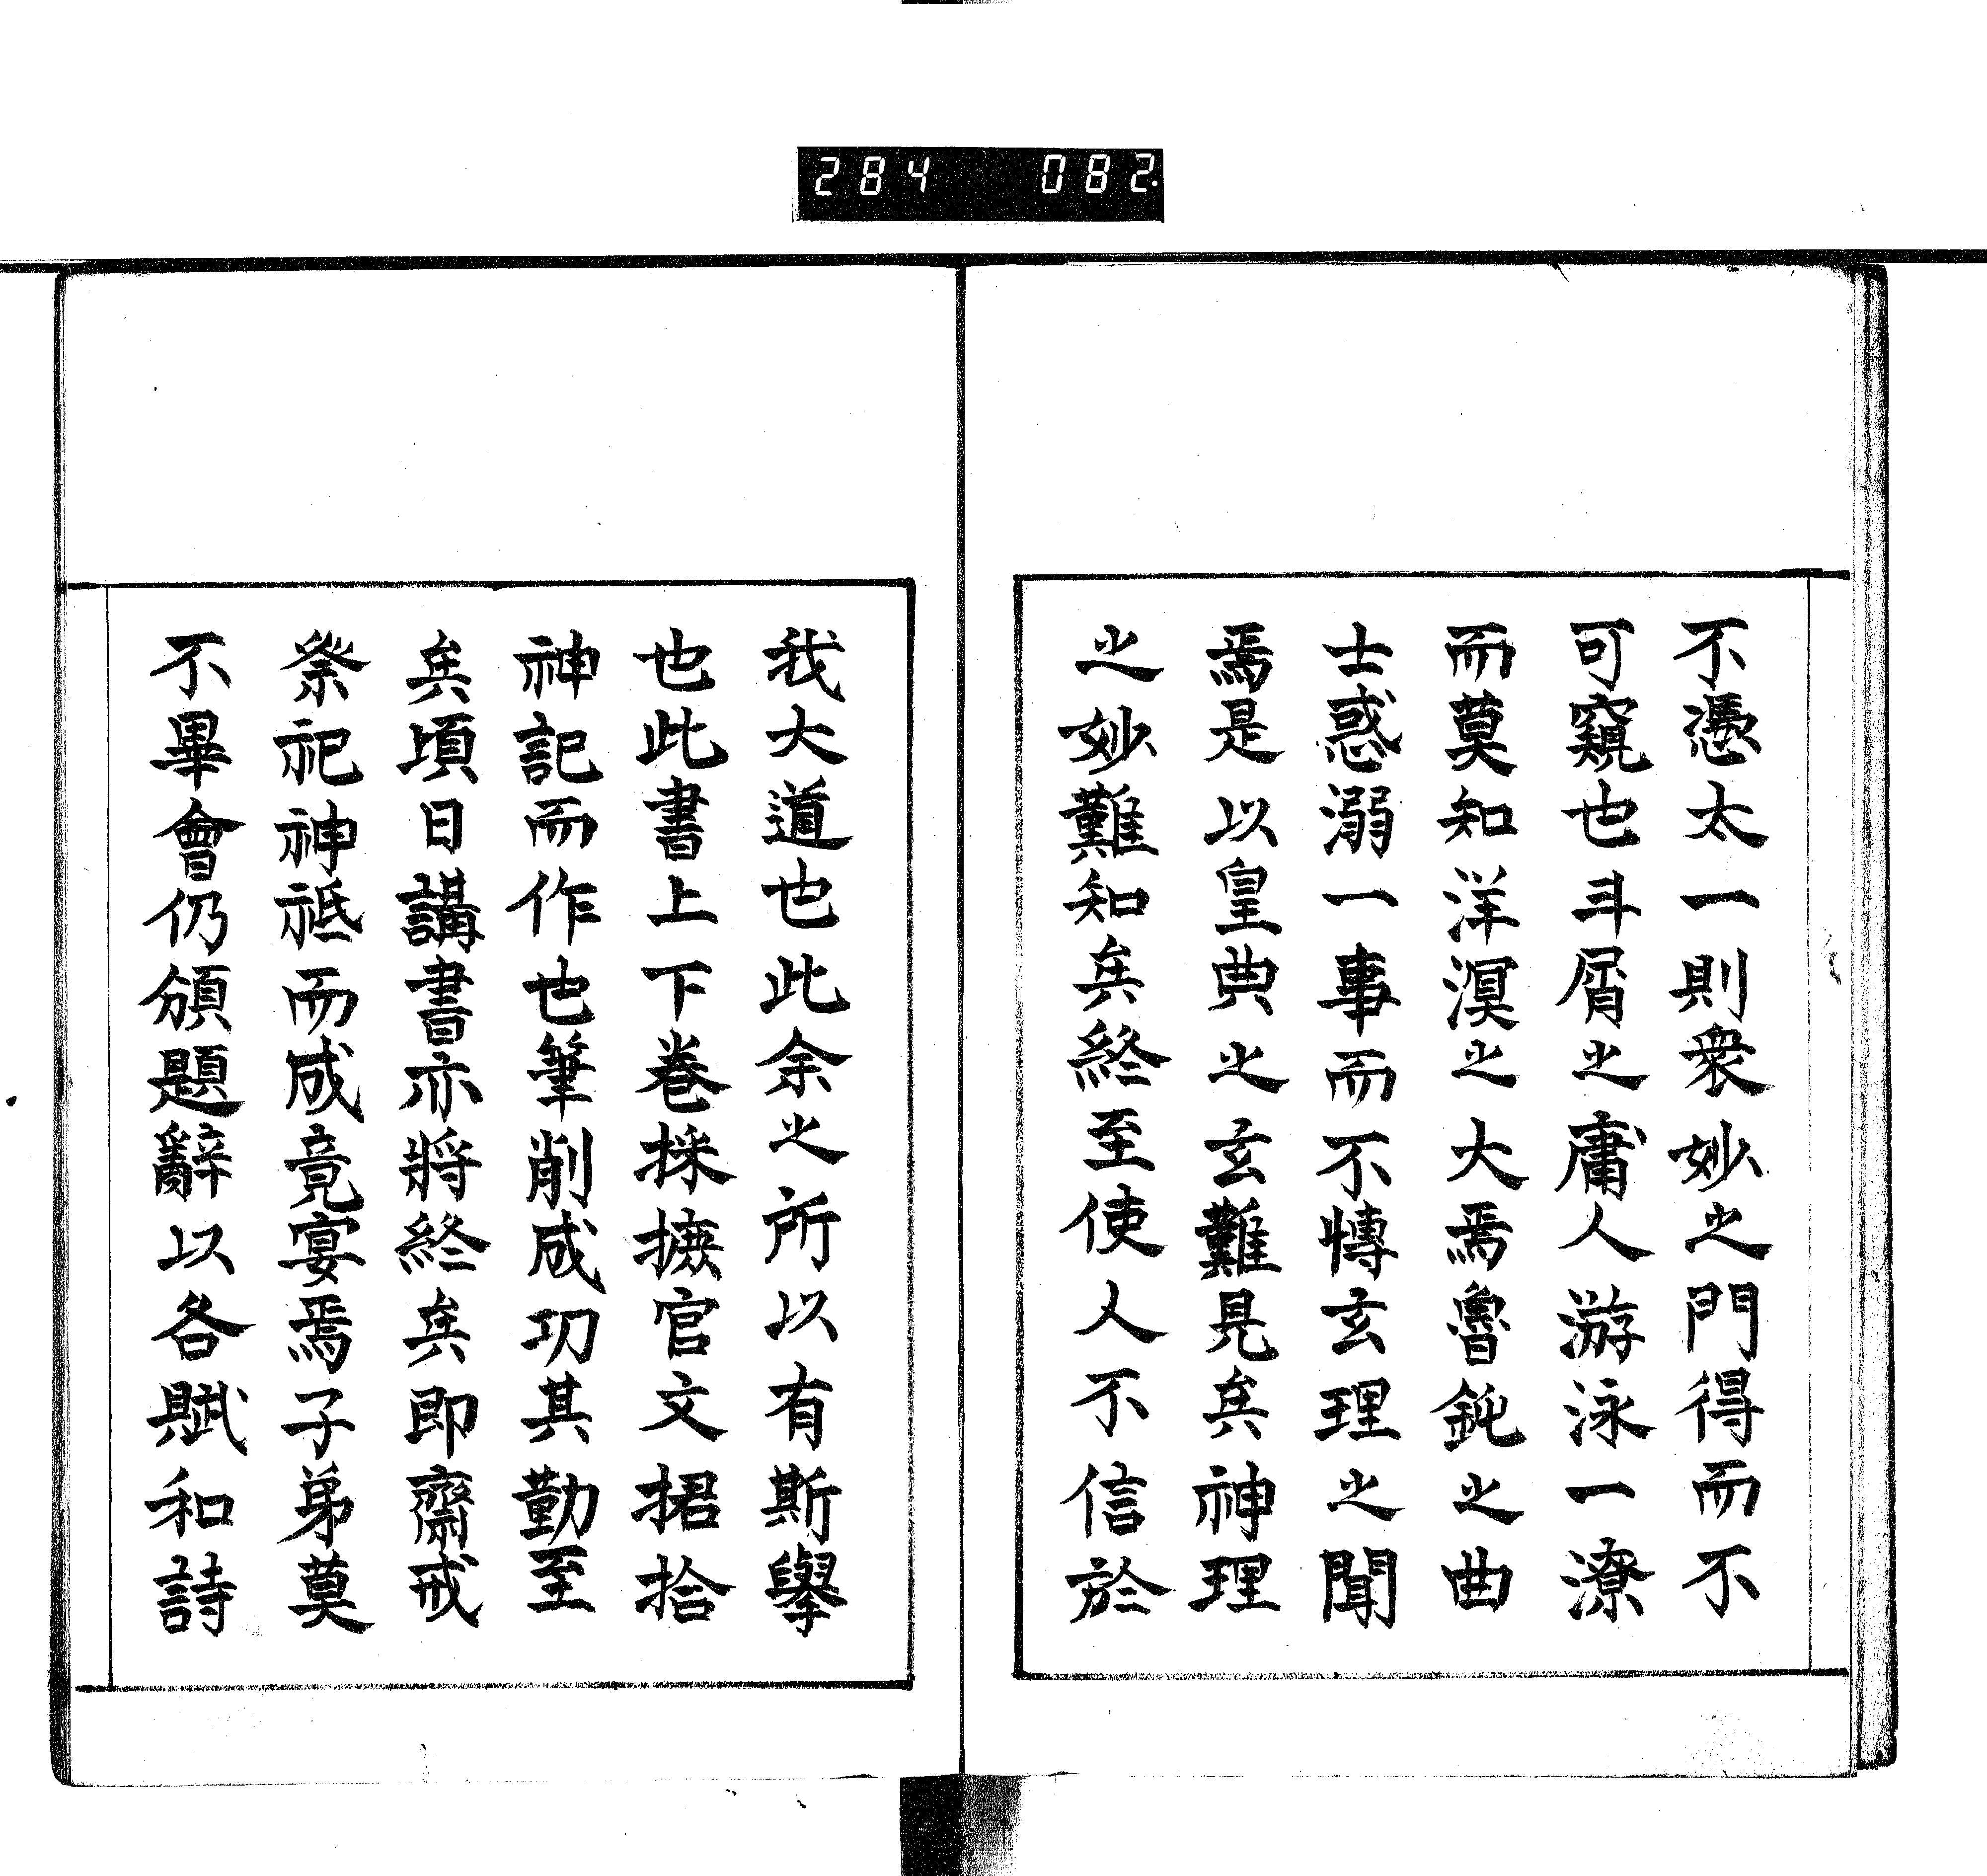 284 082.
不憑太一則衆妙之門得而不
可窺也斗屑之庸人游泳一潦
而莫知洋溟之大焉魯鈍之曲
士惑溺一事而不慱玄理之聞
焉是以皇典之玄難見矣神理
之妙難知矣終至使人不信於
我大道也此余之所以有斯擧
也此書上下卷採摭官文捃拾
神記而作也筆削成功其勤至
矣頃日講書亦將終矣即齋戒
祭祀神祗而成竟宴焉子弟莫
不畢會仍頒題辭以各賦和詩